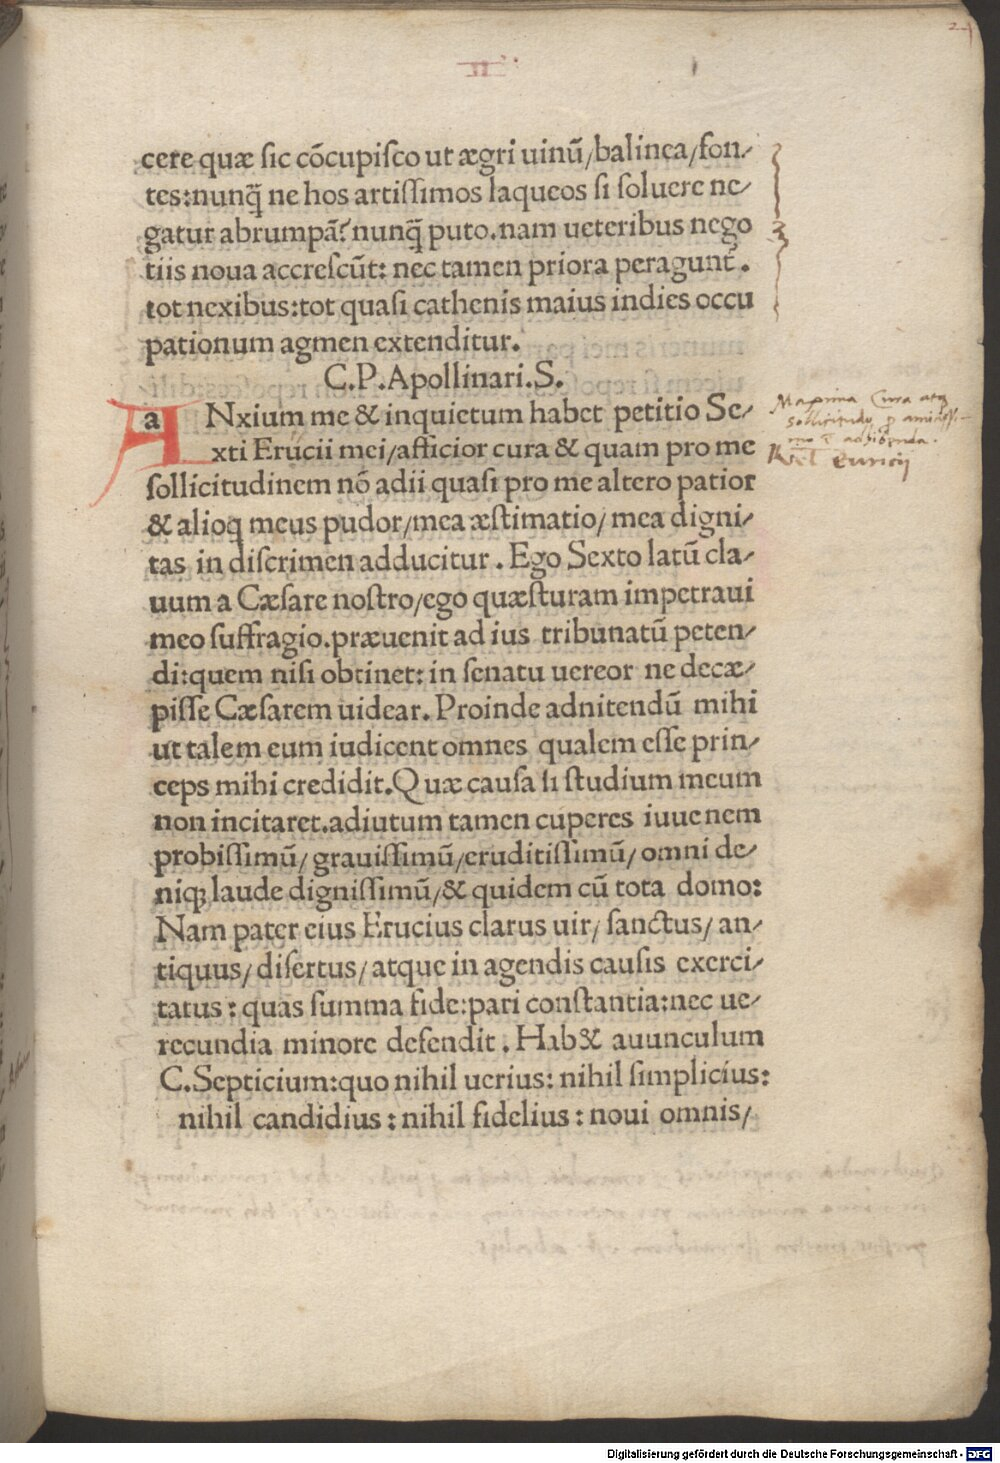 II
24
cere quæ sic cōcupisco ut ægri uinū/balinea/fon-
tes:nunq̄ ne hos artissimos laqueos si soluere ne-
gatur abrumpā?nunq̄ puto.nam ueteribus nego
tiis noua accrescūt: nec tamen priora peragunt̃.
tot nexibus:tot quasi cathenis maius indies occu
pationum agmen extenditur.
C.P.Apollinari.S.
A a Nxium me & inquietum habet petitio Se-
xti Erucii mei/afficior cura & quam pro me
sollicitudinem nō adii quasi pro me altero patior
& alioq meus pudor/mea æstimatio/mea digni-
tas in discrimen adducitur. Ego Sexto latū cla-
uum a Cæsare nostro/ego quæsturam impetraui
meo suffragio.præuenit ad ius tribunatū peten-
di:quem nisi obtinet: in senatu uereor ne decæ-
pisse Cæsarem uidear. Proinde adnitendū mihi
ut talem eum iudicent omnes qualem esse prin-
ceps mihi credidit.Quæ causa si studium meum
non incitaret.adiutum tamen cuperes iuuenem
probissimū/grauissimū/eruditissimū/omni de-
niq; laude dignissimū/& quidem cū tota domo:
Nam pater eius Erucius clarus uir/sanctus/an-
tiquus/disertus/atque in agendis causis exerci-
tatus: quas summa fide:pari constantia:nec ue-
recundia minore defendit. Hab& auunculum
C.Septicium:quo nihil uerius: nihil simplicius:
nihil candidius: nihil fidelius: noui omnis/
Maxima Cura atq
sollicitudo p amicissi-
mo ē adhibenda.
euricij
Digitalisierung gefördert durch die Deutsche Forschungsgemeinschaft - DFG